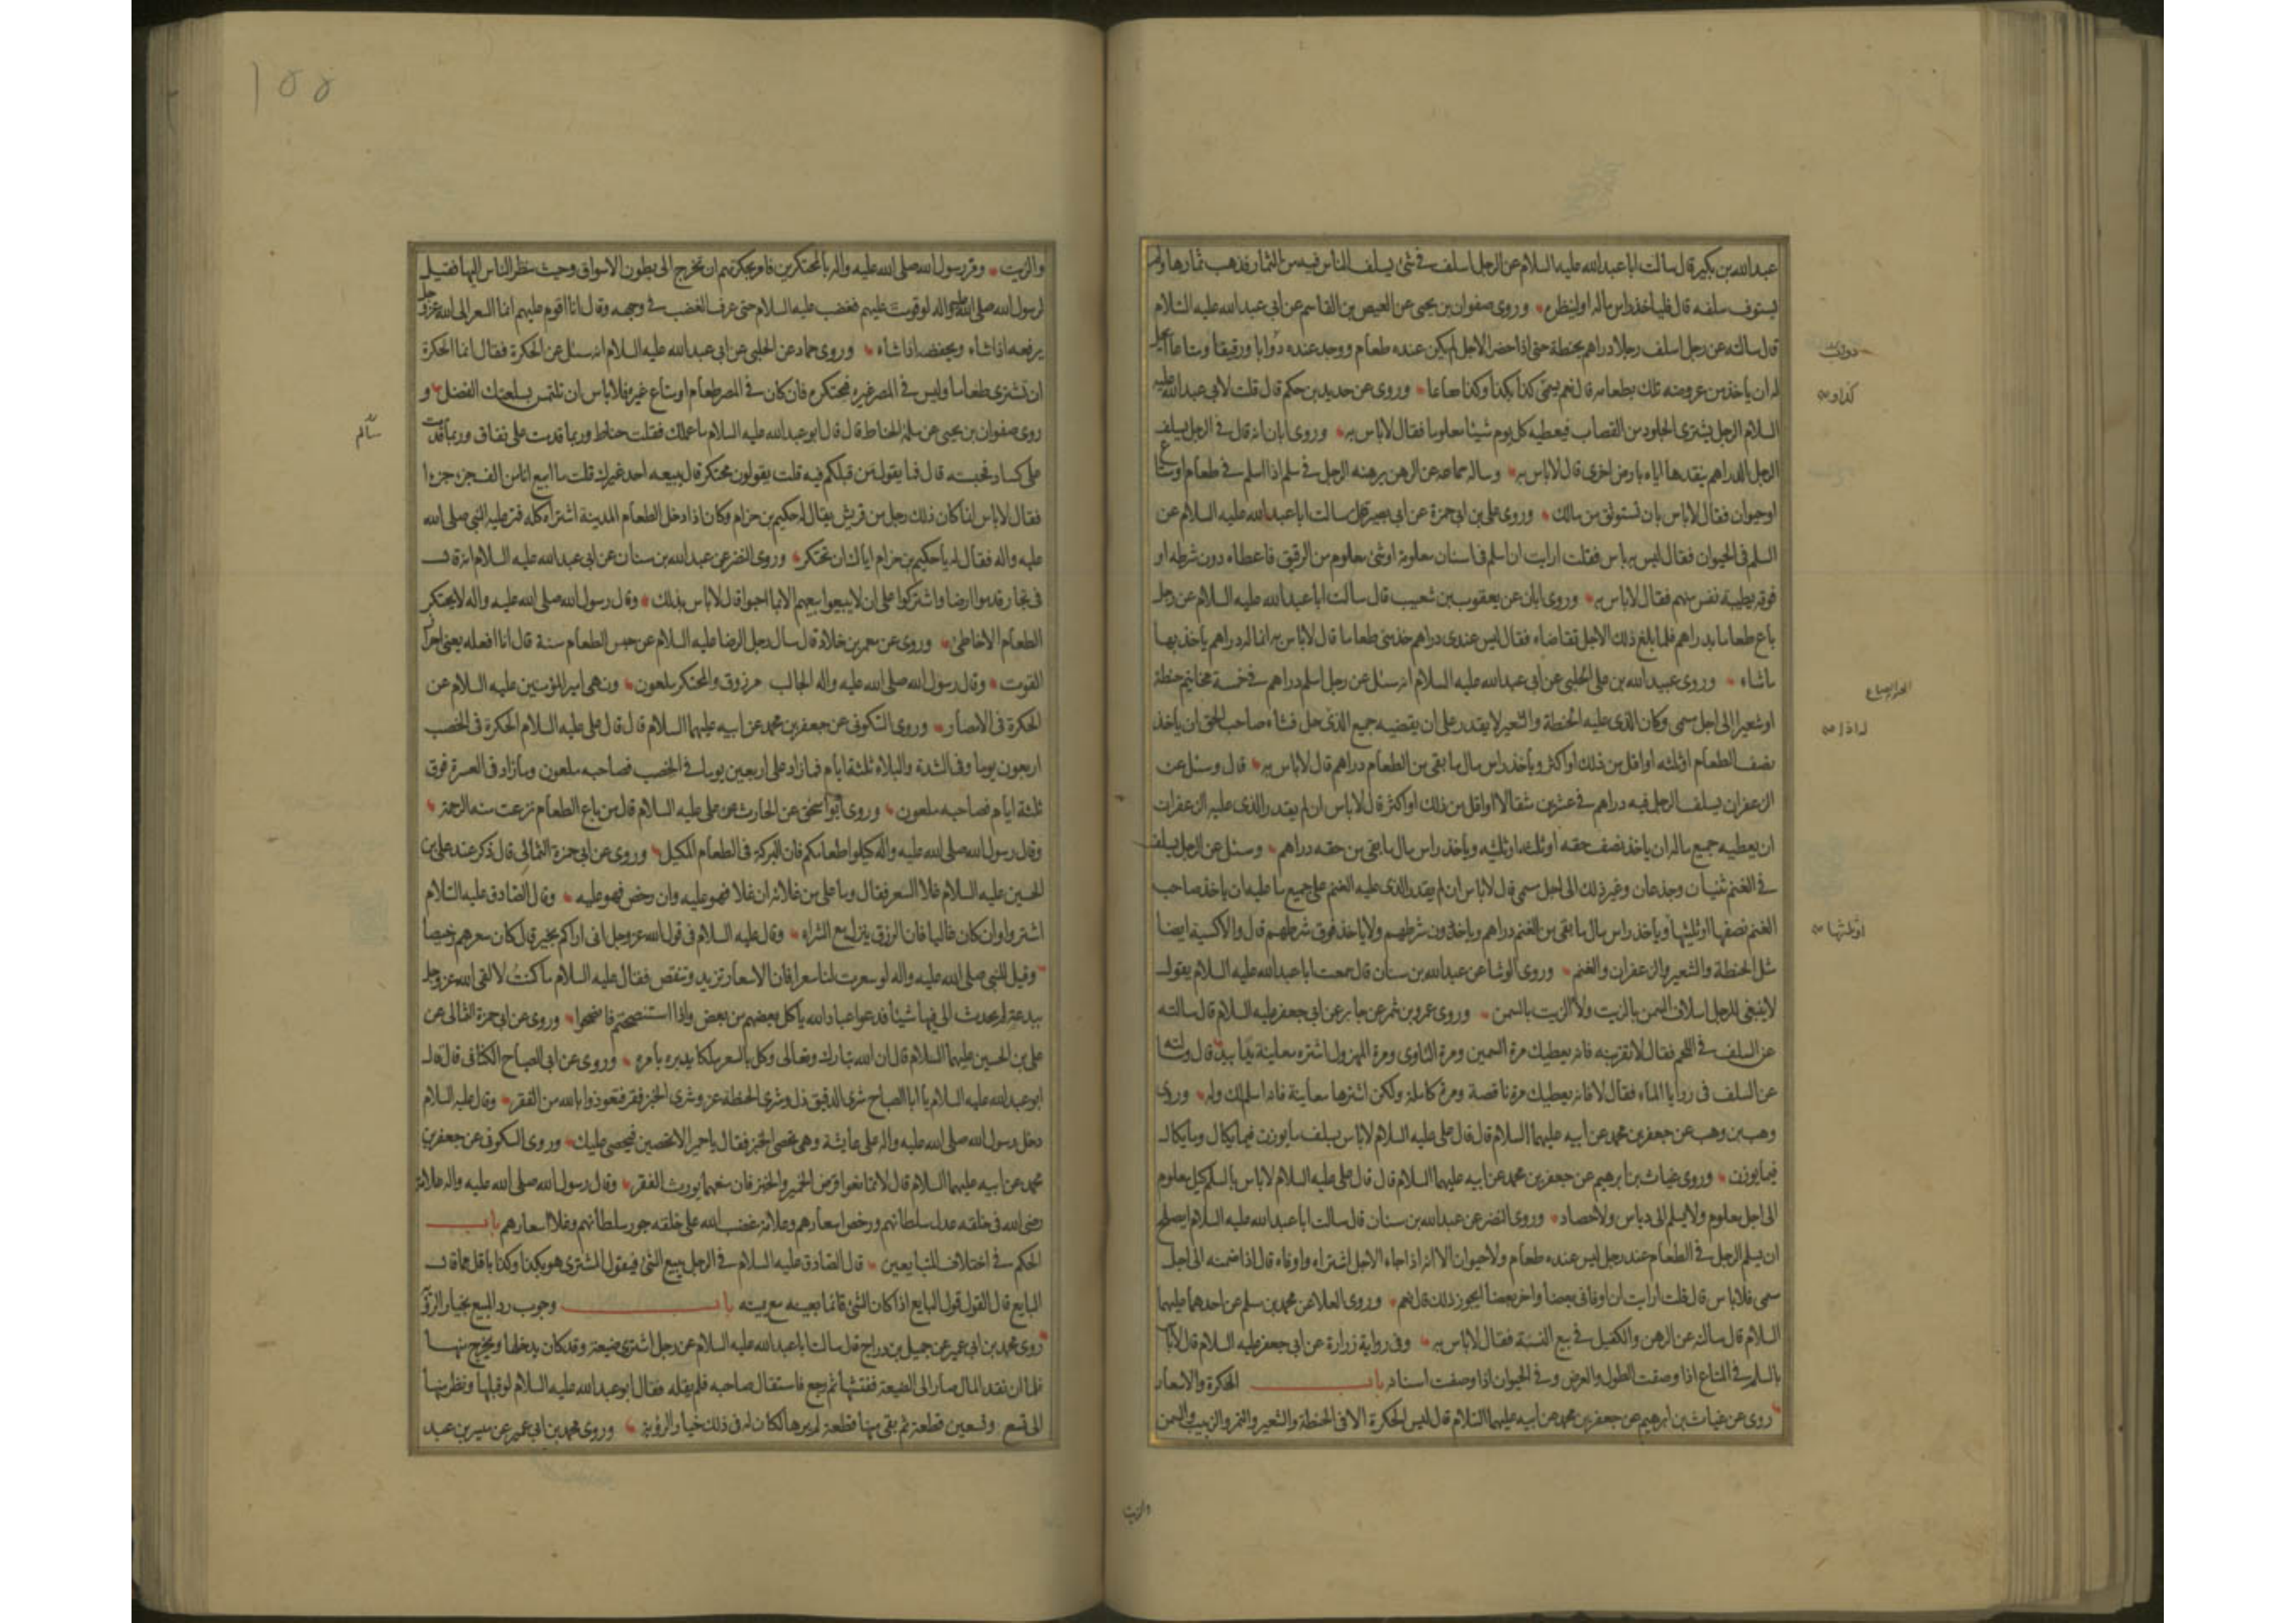 عبدالله بن بكير قال سالت ابا عبدالله عليه السلام عن الرجل اسلف في شئ يسلف الناس فيه من الثمار فذهب ثمارها ولم
يستوف سلفه قال فلياخذ راس ماله او لينظره وروى صفوان بن يحيى عن العيص بن القاسم عن ابي عبدالله عليه السلام
قال سالته عن رجل اسلف رجلا دراهم بحنطة حتى اذا حضر الاجل لم يكن عنده طعام ووجد عنده دوابا ورقيقا ومتاعا ايحل
له ان ياخذ من عروضه تلك بطعامه قال نعم يسمى كذا بكذا وكذا صاعا وروى عن حديد بن حكم قال قلت لابي عبدالله عليه
السلام الرجل يشترى الجلود من القصاب فيعطيه كل يوم شيئا معلوما فقال لاباس به وروى ابان انه قال في الرجل يسلف
الرجل الدراهم ينقدها اياه بارض اخرى قال لاباس به وساله سماعه عن الرهن يرهنه الرجل في سلم اذا اسلم في طعام او متاع
او حيوان فقال لاباس بان تستوثق من مالك وروى على بن ابى حمزة عن ابى بصير قال سالت ابا عبدالله عليه السلام عن
السلم فى الحيوان فقال ليس به باس فقلت ارايت ان اسلم فى اسنان معلومة او شئ معلوم من الرقيق فاعطاه دون شرطه او
فوقه بطيبة نفس منهم فقال لاباس به وروى ابان عن يعقوب بن شعيب قال سالت ابا عبدالله عليه السلام عن رجل
باع طعاما بدراهم فلما بلغ ذلك الاجل تقاضاه فقال ليس عندى دراهم خذ منى طعاما قال لاباس به انما له دراهم ياخذ بها
ماشاء وروى عبيدالله بن على الحلبى عن ابى عبدالله عليه السلام انه سئل عن رجل اسلم دراهم في خمسة مخاتيم حنطة
او شعير الى اجل مسمى وكان الذى عليه الحنطة والشعير لا يقدر على ان يقضيه جميع الذى حل فشاء صاحب الحق ان ياخذ
نصف الطعام او ثلثه او اقل من ذلك او اكثر وياخذ راس مال ما بقى من الطعام دراهم قال لاباس به قال وسئل عن
الزعفران يسلف الرجل فيه دراهم في عشرين مثقالا او اقل من ذلك او اكثر قال لاباس ان لم يقدر الذى عليه الزعفران
ان يعطيه جميع ماله ان ياخذ نصف حقه او ثلثه او ثلثيه وياخذ راس مال ما بقى من حقه دراهم وسئل عن الرجل يسلف
في الغنم ثنيان وجذعان وغير ذلك الى اجل مسمى قال لاباس ان لم يقدر الذى عليه الغنم على جميع ما عليه ان ياخذ صاحب
الغنم نصفها او ثلثيها وياخذ راس مال ما بقى من الغنم دراهم وياخذ دون شرطهم ولا ياخذ فوق شرطهم قال والاكسية ايضا
مثل الحنطة والشعير والزعفران والغنم وروى الوشا عن عبدالله بن سنان قال سمعت ابا عبدالله عليه السلام يقول
لا ينبغى للرجل اسلاف السمن بالزيت ولا الزيت بالسمن وروى عمرو بن شمر عن جابر عن ابى جعفر عليه السلام قال سالته
عن السلف في اللحم فقال لا تقربنه فانه يعطيك مرة السمين ومرة التاوى ومرة المهزول اشتره معاينة يدا بيد قال وسالته
عن السلف في روايا الماء فقال لا فانه يعطيك مرة ناقصة ومرة كاملة ولكن اشترها معاينة فانه اسلم لك وله وروى
وهب بن وهب عن جعفر بن محمد عن ابيه عليهما السلام قال قال على عليه السلام لاباس بسلف ما يوزن فيما يكال وما يكال
فيما يوزن وروى غياث بن ابرهيم عن جعفر بن محمد عن ابيه عليهما السلام قال قال على عليه السلام لاباس بالسلم كيل معلوم
الى اجل معلوم ولا يسلم الى دياس ولا حصاد وروى النضر عن عبدالله بن سنان قال سالت ابا عبدالله عليه السلام ايصلح
ان يسلم الرجل في الطعام عند رجل ليس عنده طعام ولا حيوان الا انه اذا جاء الاجل اشتراه واوفاه قال اذا ضمنه الى اجل
مسمى فلاباس قال قلت ارايت ان اوفانى بعضا واخر بعضا ايجوز ذلك قال نعم وروى العلا عن محمد بن مسلم عن احدهما عليهما
السلام قال سالته عن الرهن والكفيل في بيع النسية فقال لاباس به وفى رواية زرارة عن ابى جعفر عليه السلام قال لاباس
بالسلم في المتاع اذا وصفت الطول والعرض وفى الحيوان اذا وصفت اسنانه باب الحكرة والاسعار
روى عن غياث بن ابرهيم عن جعفر بن محمد عن ابيه عليهما السلام قال ليس الحكرة الا فى الحنطة والشعير والتمر والزبيب والسمن
والزيت
او ثلثها
١٥٥
والزيت ومر رسول الله صلى الله عليه واله بالمحتكرين فامر بحكرتهم ان تخرج الى بطون الاسواق وحيث تنظر الناس اليها فقيل
لرسول الله صلى الله عليه واله لو قومت عليهم فغضب عليه السلام حتى عرف الغضب في وجهه وقال انا اقوم عليهم انما السعر الى الله عزوجل
يرفعه اذا شاء ويخفضه اذا شاء وروى حماد عن الحلبى عن ابى عبدالله عليه السلام انه سئل عن الحكرة فقال انما الحكرة
ان تشترى طعاما وليس في المصر غيره فتحتكره فان كان في المصر طعام او متاع غيره فلاباس ان تلتمس بسلعتك الفضل و
روى صفوان بن يحيى عن سلمة الحناط قال قال ابو عبدالله عليه السلام ما عملك فقلت حناط وربما قدمت على نفاق وربما قدمت
على كساد فحبسته قال فما يقول من قبلكم فيه قلت يقولون محتكر قال يبيعه احد غيرك قلت ما ابيع انا من الف جزء جزءا
فقال لاباس انما كان ذلك رجل من قريش يقال له حكيم بن حزام وكان اذا دخل الطعام المدينة اشتراه كله فمر عليه النبى صلى الله
عليه واله فقال له يا حكيم بن حزام اياك ان تحتكر وروى النضر عن عبدالله بن سنان عن ابى عبدالله عليه السلام انه قال
فى تجار قدموا ارضا واشتركوا على ان لا يبيعوا بيعهم الا بما احبوا قال لاباس بذلك وقال رسول الله صلى الله عليه واله لا يحتكر
الطعام الا خاطئ وروى عن معمر بن خلاد قال سال رجل الرضا عليه السلام عن حبس الطعام سنة قال انا افعله يعنى احراز
القوت وقال رسول الله صلى الله عليه واله الجالب مرزوق والمحتكر ملعون ونهى امير المؤمنين عليه السلام عن
الحكرة فى الامصار وروى السكونى عن جعفر بن محمد عن ابيه عليهما السلام قال قال على عليه السلام الحكرة فى الخصب
اربعون يوما وفى الشدة والبلاء ثلثة ايام فما زاد على اربعين يوما في الخصب فصاحبه ملعون وما زاد فى العسرة فوق
ثلثة ايام فصاحبه ملعون وروى ابو اسحق عن الحارث عن على عليه السلام قال من باع الطعام نزعت منه الرحمة
وقال رسول الله صلى الله عليه واله كيلوا طعامكم فان البركة فى الطعام المكيل وروى عن ابى حمزة الثمالى قال ذكر عند على بن
الحسين عليه السلام غلا السعر فقال وما على من غلائه ان غلا فهو عليه وان رخص فهو عليه وقال الصادق عليه السلام
اشتروا وان كان غاليا فان الرزق ينزل مع الشراء وقال عليه السلام فى قول الله عزوجل انى اراكم بخير قال كان سعرهم رخيصا
وقيل للنبى صلى الله عليه واله لو سعرت لنا سعرا فان الاسعار تزيد وتنقص فقال عليه السلام ما كنت لالقى الله عزوجل
ببدعة لم يحدث الى فيها شيئا فدعوا عباد الله ياكل بعضهم من بعض واذا استنصحتم فانصحوا وروى عن ابى حمزة الثمالى عن
على بن الحسين عليهما السلام قال ان الله تبارك وتعالى وكل بالسعر ملكا يدبره بامره وروى عن ابى الصباح الكنانى قال قال
ابو عبدالله عليه السلام يا ابا الصباح شرى الدقيق ذل وشرى الحنطة عز وشرى الخبز فقر فتعوذوا بالله من الفقر وقال عليه السلام
دخل رسول الله صلى الله عليه واله على عايشة وهى تحصى الخبز فقال يا حميرا لا تحصين فيحصى عليك وروى السكونى عن جعفر بن
محمد عن ابيه عليهما السلام قال لا تمانعوا قرض الخمير والخبز فان منعهما يورث الفقر وقال رسول الله صلى الله عليه واله علامة
رضى الله فى خلقه عدل سلطانهم ورخص اسعارهم وعلامة غضب الله على خلقه جور سلطانهم وغلا اسعارهم باب
الحكم في اختلاف المتبايعين قال الصادق عليه السلام في الرجل يبيع الشئ فيقول المشترى هو بكذا وكذا باقل مما قال
البايع قال القول قول البايع اذا كان الشئ قائما بعينه مع يمينه باب وجوب رد المبيع بخيار الرؤية
روى محمد بن ابى عمير عن جميل بن دراج قال سالت ابا عبدالله عليه السلام عن رجل اشترى ضيعة وقد كان يدخلها ويخرج منها
فلما ان نقد المال صار الى الضيعة ففتشها ثم رجع فاستقال صاحبه فلم يقله فقال ابو عبدالله عليه السلام لو قبلها ونظر منها
الى تسع وتسعين قطعة ثم بقى منها قطعة لم يرها لكان له فى ذلك خيار الرؤية وروى محمد بن ابى عمير عن ميسر بن عبد